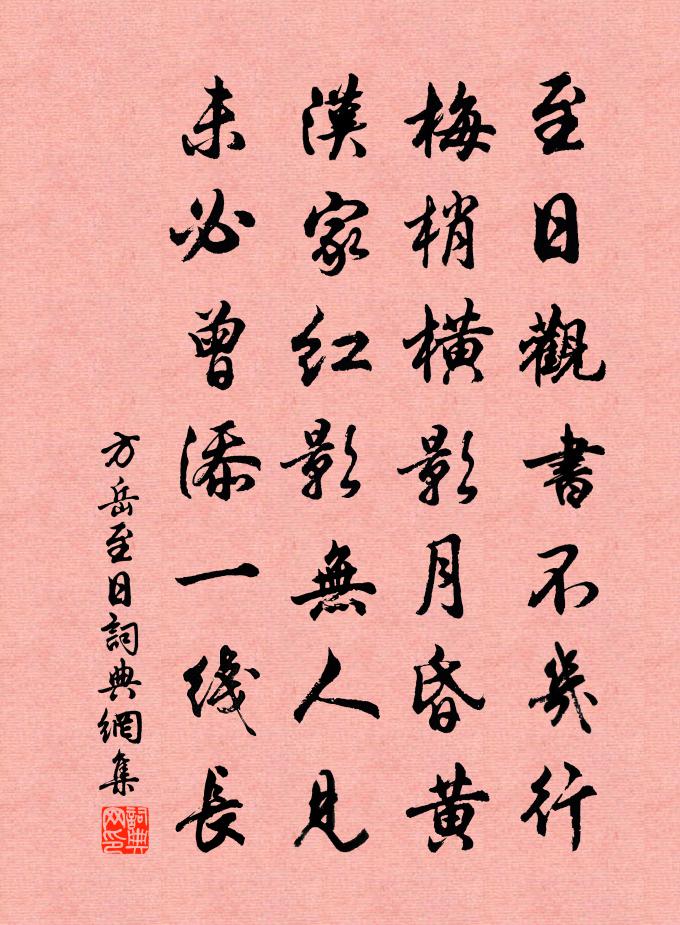 至日觀書不幾行
梅梢橫影月昏黃
漢家紅影無人見
未必曾添一线長
方岳至日詞典網集
詞典网印